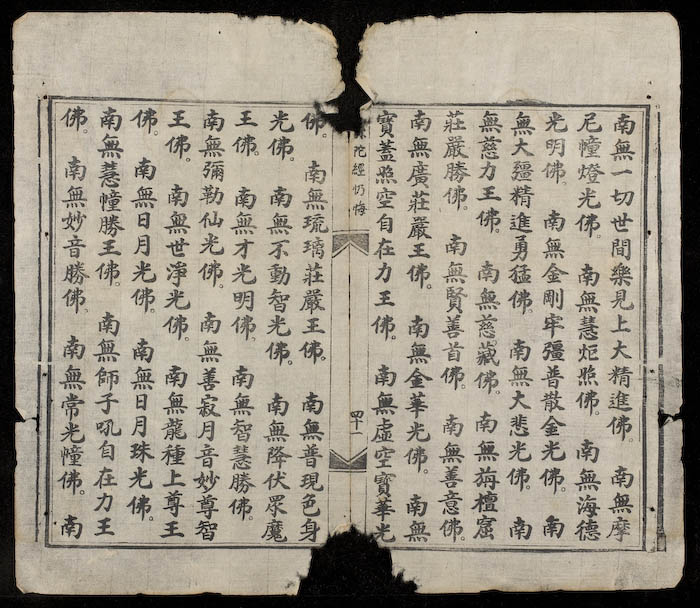 南無一切世間樂見上大精進佛。南無摩
尼幢燈光佛。南無慧炬照佛。南無海德
光明佛。南無金剛牢彊普散金光佛。南
無大彊精進勇猛佛。南無大悲光佛。南
無慈力王佛。南無慈藏佛。南無栴檀窟
莊嚴勝佛。南無賢善首佛。南無善意佛。
南無廣莊嚴王佛。南無金華光佛。南無
寶蓋照空自在力王佛。南無虛空寶華光
陀經仍悔
四十一
佛。南無琉璃莊嚴王佛。南無普現色身
光佛。南無不動智光佛。南無降伏眾魔
王佛。南無才光明佛。南無智慧勝佛。
南無彌勒仙光佛。南無善寂月音妙尊智
王佛。南無世淨光佛。南無龍種上尊王
佛。南無日月光佛。南無日月珠光佛。
南無慧幢勝王佛。南無師子吼自在力王
佛。南無妙音勝佛。南無常光幢佛。南